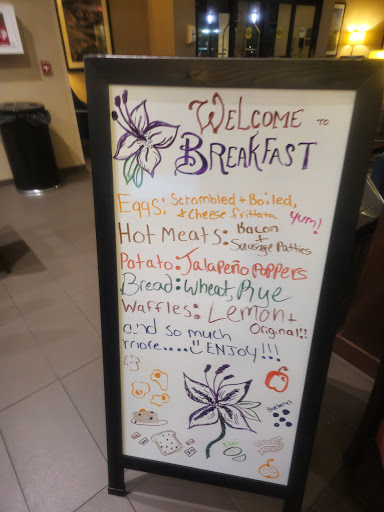 WELCOME TO
BREAKFAST
Eggs: Scrambled + Boiled,
+ Cheese frittata Yum!
Hot Meats: Bacon
+
Sausage Patties
Potato: Jalapeño Poppers
Bread: Wheat, Rye
Waffles: Lemon +
Original!!
and so much
more..... ENJOY!!!